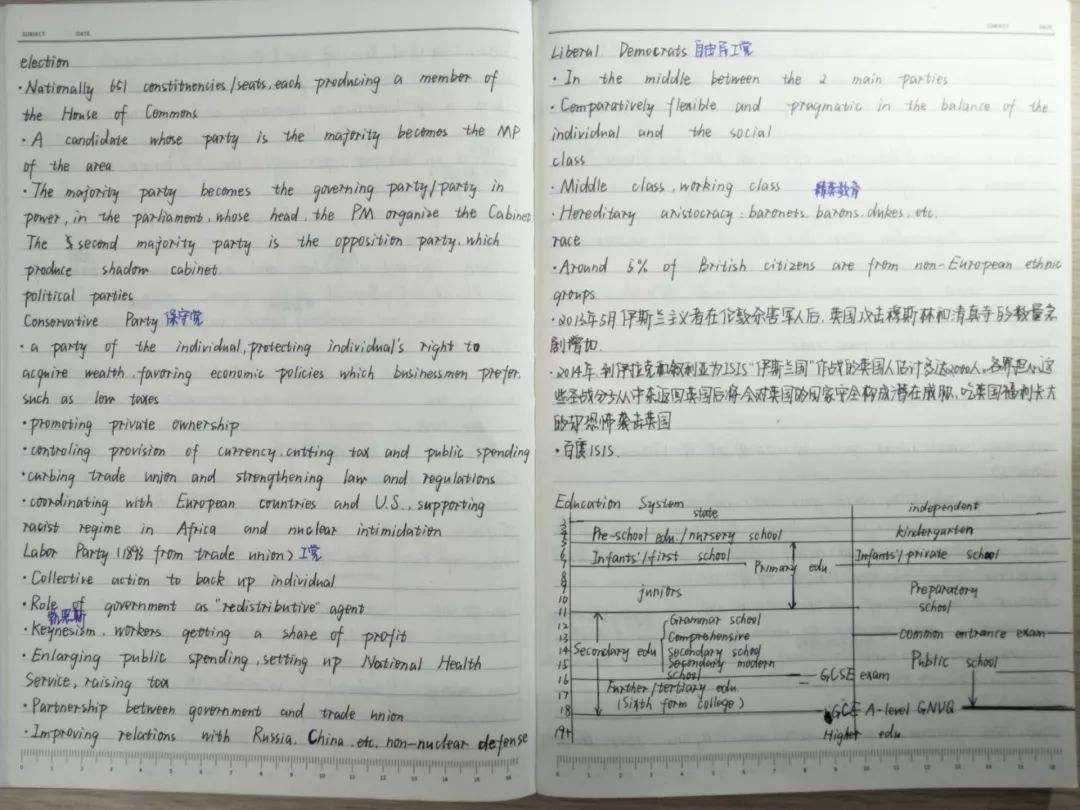 SUBJECT DATE
election
·Nationally 651 constituencies/seats, each producing a member of
the House of Commons
·A candidate whose party is the majority becomes the MP
of the area
·The majority party becomes the governing party/party in
power, in the parliament, whose head, the PM organize the Cabinet
The second majority party is the opposition party, which
produce shadow cabinet
political parties
Conservative Party 保守党
·a party of the individual, protecting individual's right to
acquire wealth, favoring economic policies which businessmen prefer,
such as low taxes
·promoting private ownership
·controling provision of currency, cutting tax and public spending
·curbing trade union and strengthening law and regulations
·coordinating with European countries and U.S., supporting
racist regime in Africa and nuclear intimidation
Labor Party (1893 from trade union) 工党
·Collective action to back up individual
·Role of government as "redistributive" agent
凯恩斯
·Keynesism, workers getting a share of profit
·Enlarging public spending, setting up National Health
Service, raising tax
·Partnership between government and trade union
·Improving relations with Russia, China, etc, non-nuclear defense
0 1 2 3 4 5 6 7 8 9 10 11 12 13 14 15 16
SUBJECT DATE
Liberal Democrats 自由民主党
·In the middle between the 2 main parties
·Comparatively flexible and pragmatic in the balance of the
individual and the social
class
·Middle class, working class 精英教育
·Hereditary aristocracy: baronets, barons, dukes, etc.
race
·Around 5% of British citizens are from non-European ethnic
groups
·2013年5月伊斯兰主义者在伦敦杀害军人后,英国攻击穆斯林和清真寺的数量急
剧增加.
·2014年,到伊拉克和叙利亚为ISIS"伊斯兰国"作战的英国人估计多达2000人,各界担心这
些圣战分子从中东返回英国后将会对英国的国家安全构成潜在威胁,吃英国福利长大
的却恐怖袭击英国
·百度ISIS.
Education System
state independent
3
4 Pre-school edu./nursery school kindergarten
5
6 Infants'/first school Infants'/private school
7 Primary edu
8
9 juniors Preparatory
10 school
11
12 Grammar school
13 Comprehensive common entrance exam
14 Secondary edu secondary school
15 Secondary modern Public school
16 school GCSE exam
17 Further/tertiary edu
18 (Sixth form college) GCE A-level GNVQ
19+ Higher edu
0 1 2 3 4 5 6 7 8 9 10 11 12 13 14 15 16